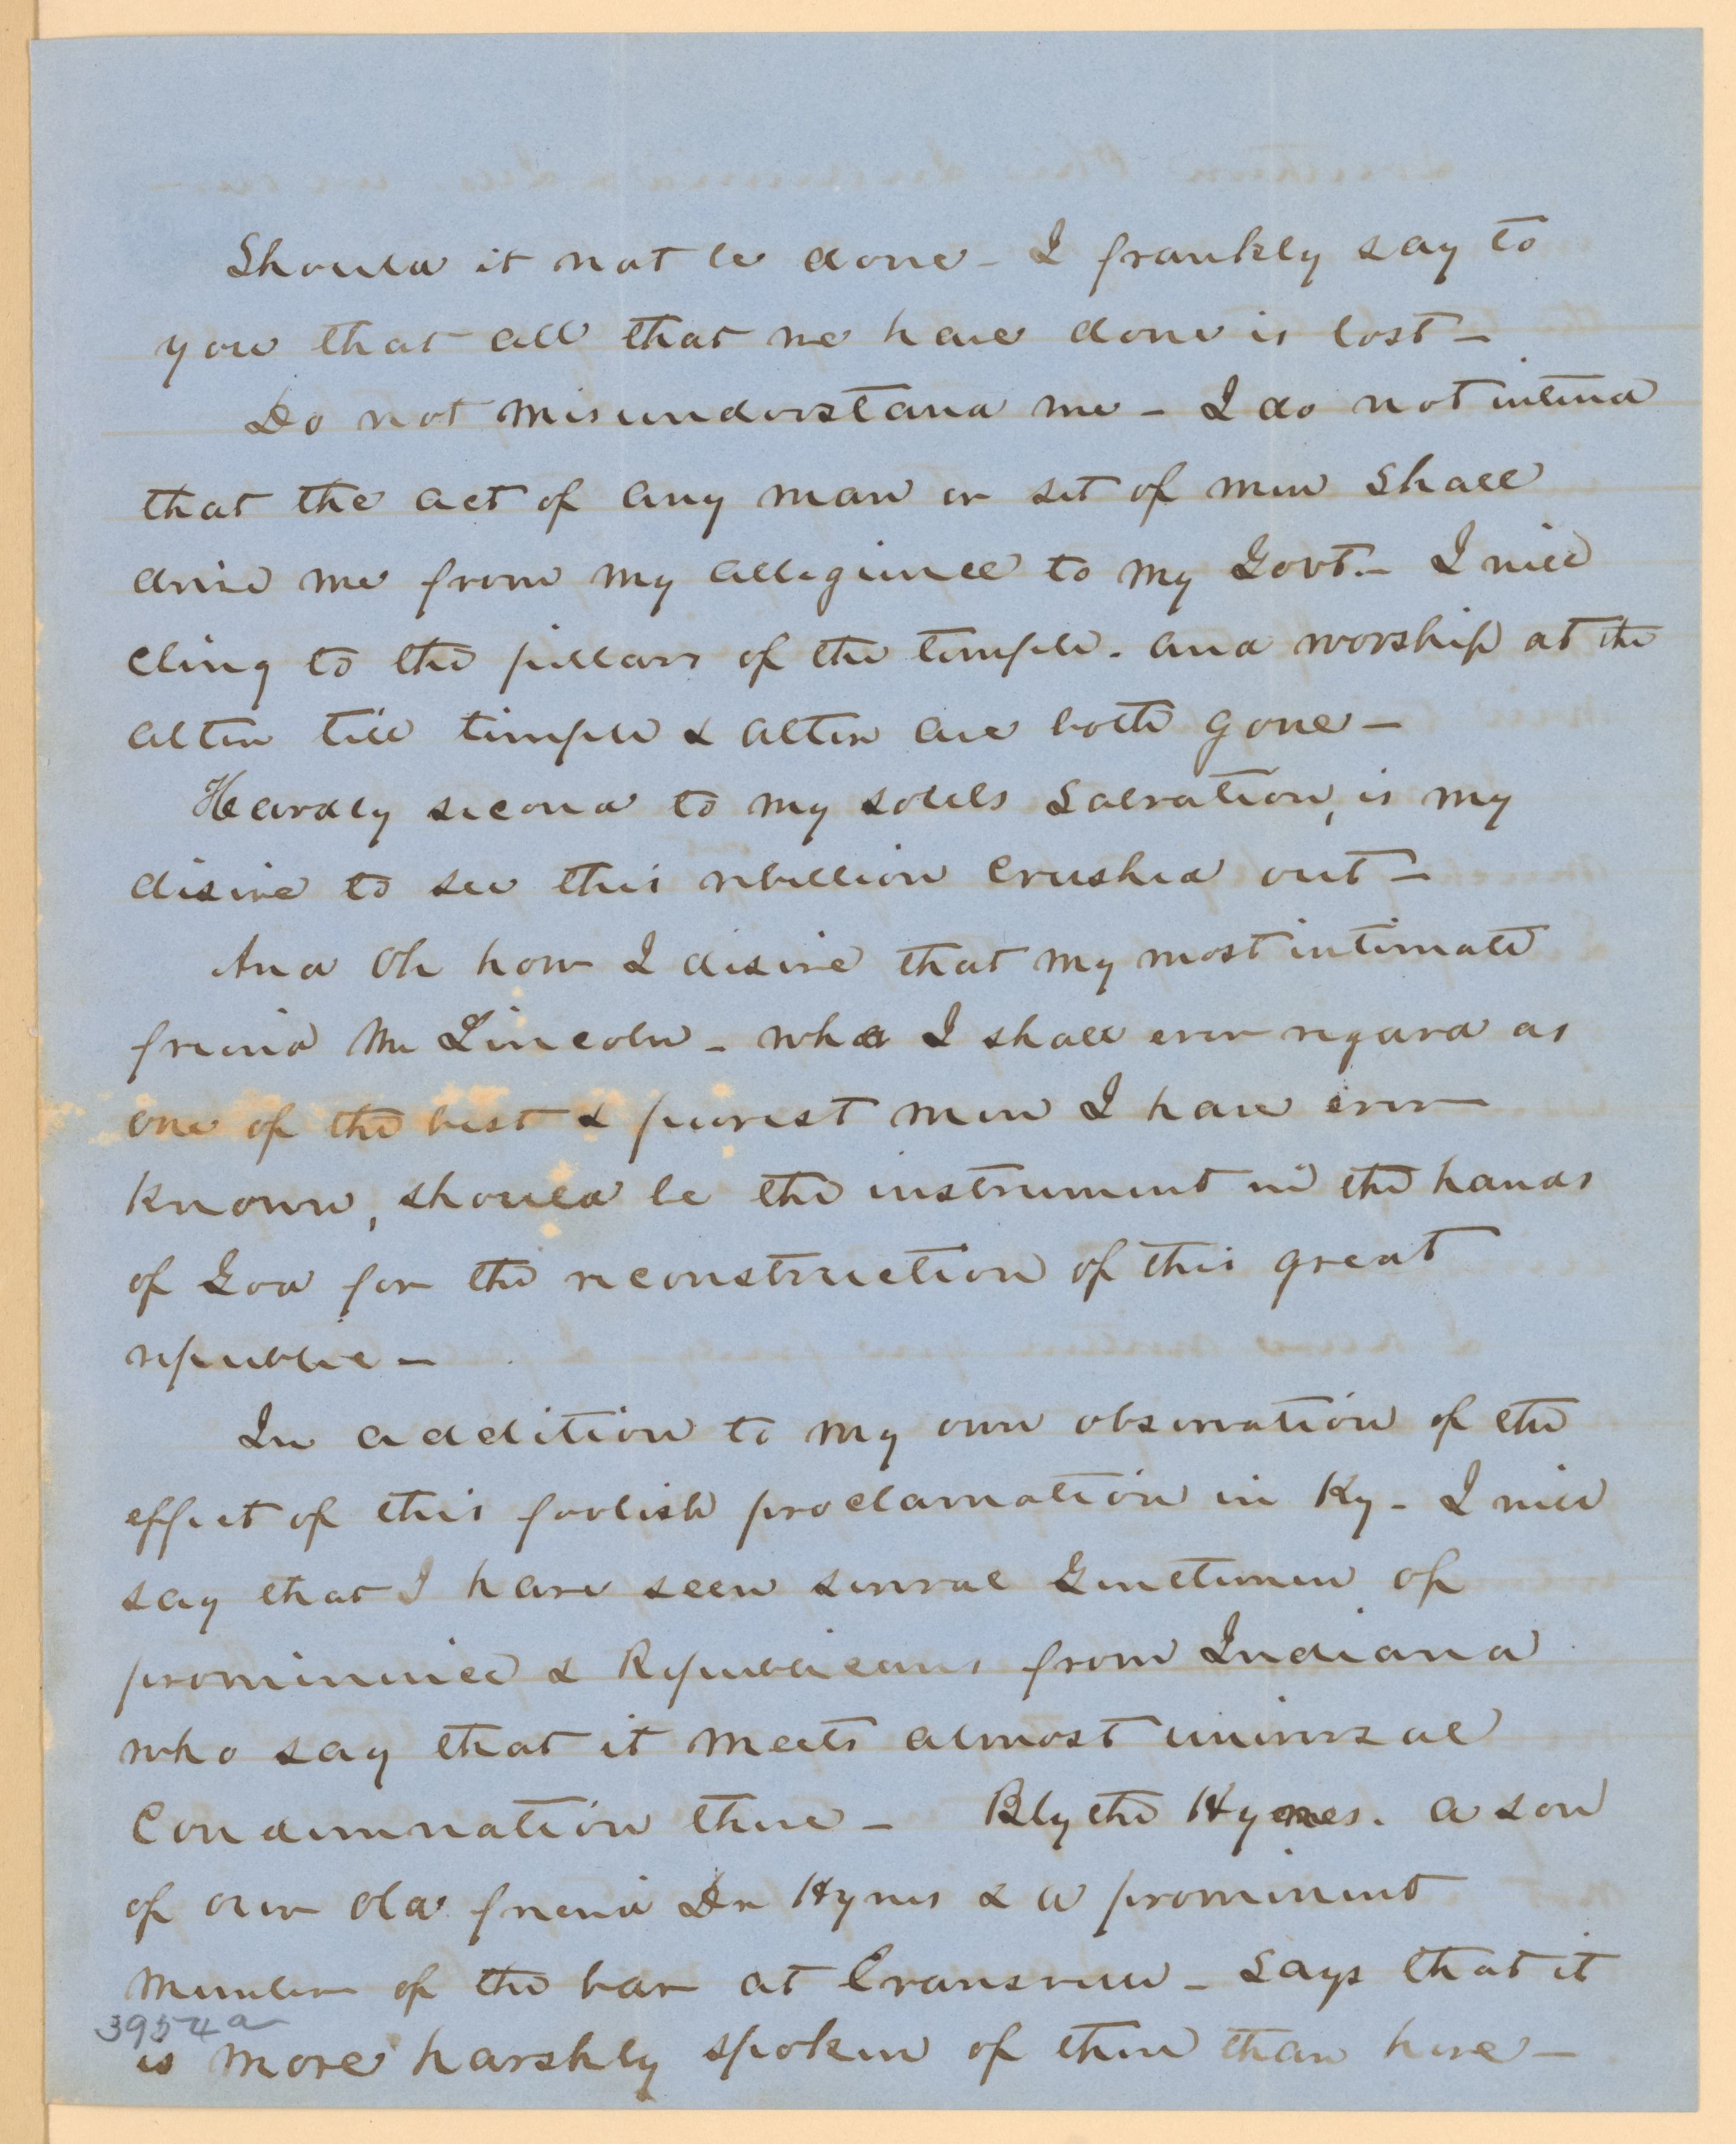 Should it not be done – I frankly say to
you that all that we have done is lost –
Do not misunderstand me – I do not intend
that the act of any man or set of men shall
drive me from my allegiance to my Govt. – I will
cling to the pillars of the temple. and worship at the
alter till temple & alter are both gone –
Heardly second to my souls salvation, is my
desire to see this rebellion crushed out –
And Oh how I desire that my most intimate
friend Mr Lincoln – who I shall ever regard as
one of the best & purest men I have ever
known, should be the instrument in the hands
of God for the reconstruction of this great
republic –
In addition to my own observation of the
effect of this foolish proclamation in Ky – I will
say that I have seen several Gentlemen of
prominence & Republicans from Indiana
who say that it meets almost universal
Condemnation there – Blythe Hynes. a son
of our old friend Dr Hynes & a prominent
member of the bar at Evansville – says that it
is more harshly spoken of there than here –
3954a